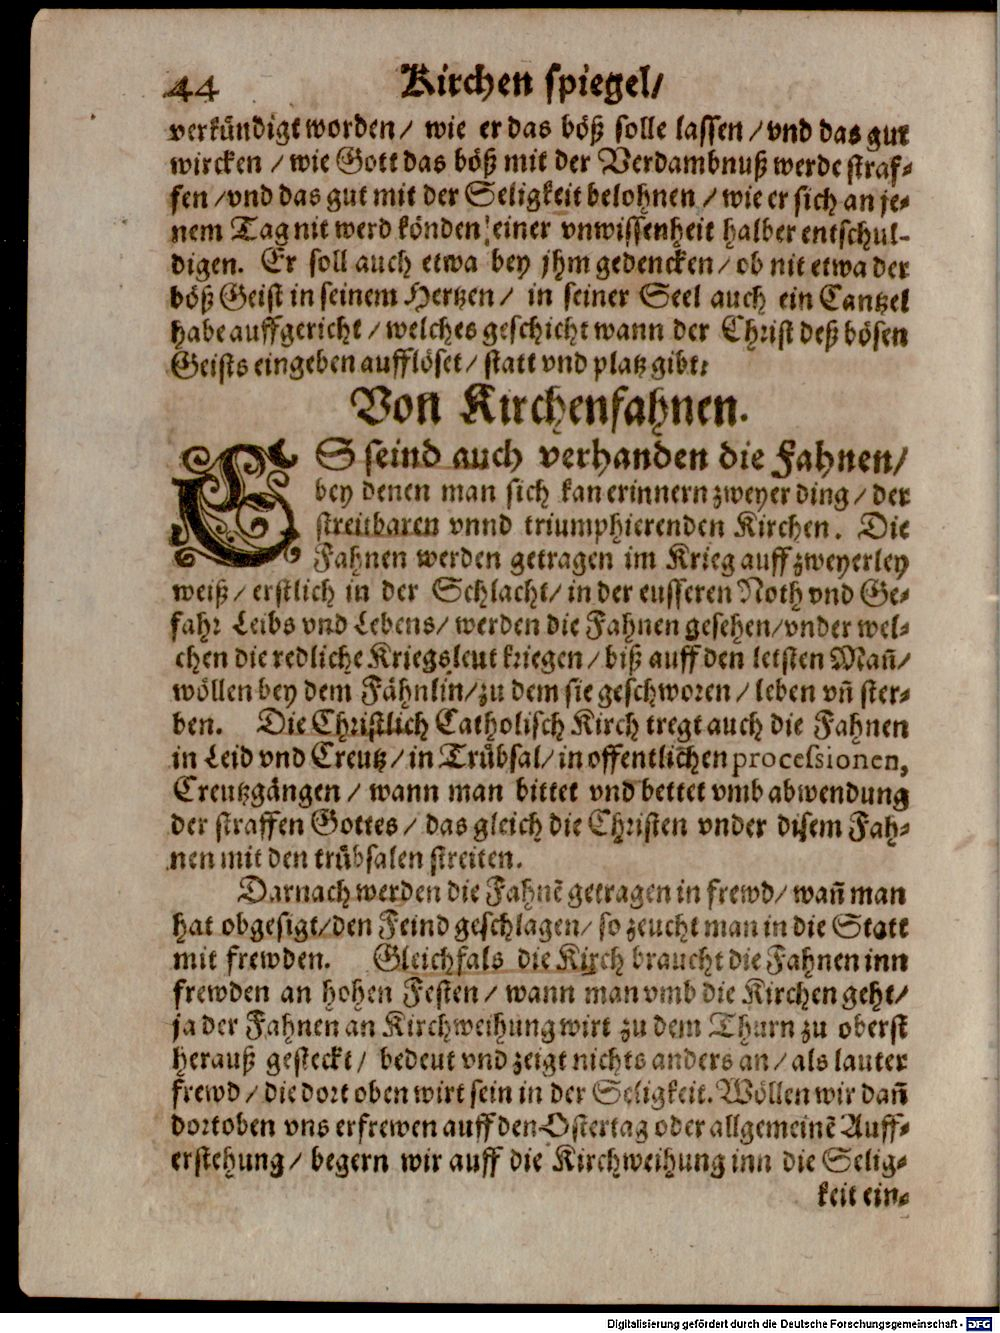 44 Kirchen spiegel/
verkündigt worden/ wie er das böß solle lassen/ vnd das gut
wircken/ wie Gott das böß mit der Verdambnuß werde straf-
fen/ vnd das gut mit der Seligkeit belohnen/ wie er sich an je-
nem Tag nit werd könden einer vnwissenheit halber entschul-
digen. Er soll auch etwa bey jhm gedencken/ ob nit etwa der
böß Geist in seinem Hertzen/ in seiner Seel auch ein Cantzel
habe auffgericht/ welches geschicht wann der Christ deß bösen
Geists eingeben aufflöset/ statt vnd platz gibt.
Von Kirchenfahnen.
ES seind auch verhanden die Fahnen/
bey denen man sich kan erinnern zweyer ding/ der
streitbaren vnnd triumphierenden Kirchen. Die
Fahnen werden getragen im Krieg auff zweyerley
weiß/ erstlich in der Schlacht/ in der eusseren Noth vnd Ge-
fahr Leibs vnd Lebens/ werden die Fahnen gesehen/ vnder wel-
chen die redliche Kriegsleut kriegen/ biß auff den letsten Mañ/
wöllen bey dem Fähnlin/ zu dem sie geschworen/ leben vñ ster-
ben. Die Christlich Catholisch Kirch tregt auch die Fahnen
in Leid vnd Creutz/ in Trübsal/ in offentlichen processionen,
Creutzgängen/ wann man bittet vnd bettet vmb abwendung
der straffen Gottes/ das gleich die Christen vnder disem Fah-
nen mit den trübsalen streiten.
Darnach werden die Fahnē getragen in frewd/ wañ man
hat obgesigt/ den Feind geschlagen/ so zeucht man in die Statt
mit frewden. Gleichfals die Kirch braucht die Fahnen inn
frewden an hohen Festen/ wann man vmb die Kirchen geht/
ja der Fahnen an Kirchweihung wirt zu dem Thurn zu oberst
herauß gesteckt/ bedeut vnd zeigt nichts anders an/ als lauter
frewd/ die dort oben wirt sein in der Seligkeit. Wöllen wir dañ
dort oben vns erfrewen auff den Ostertag oder allgemeinē Auff-
erstehung/ begern wir auff die Kirchweihung inn die Selig-
keit ein-
Digitalisierung gefördert durch die Deutsche Forschungsgemeinschaft - DFG